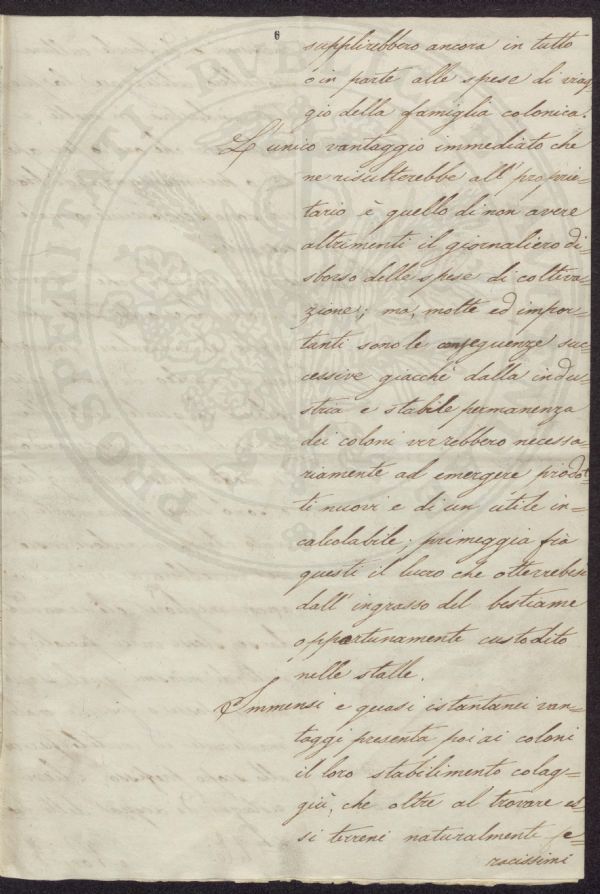 6
supplirebbero ancora in tutto
o in parte alle spese di viag-
gio della famiglia colonica.
L'unico vantaggio immediato che
ne risulterebbe all'proprie-
tario è quello di non avere
altrimenti il giornaliero di-
sborso delle spese di coltiva-
zione; ma, molte ed impor-
tanti sono le conseguenze suc-
cessive giacchè dalla indu-
stria e stabile permanenza
dei coloni verrebbero necessa-
riamente ad emergere prodot-
ti nuovi e di un'utile in-
calcolabile; primeggia frà
questi il lucro che otterrebbesi
dall'ingrasso del bestiame
opportunamente custodito
nelle stalle.
Immensi e quasi istantanei van-
taggi presenta poi ai coloni
il loro stabilimento colag-
giù, che oltre al trovare es-
si terreni naturalmente fe-
racissimi
PROSPERITATI PUBLICAE